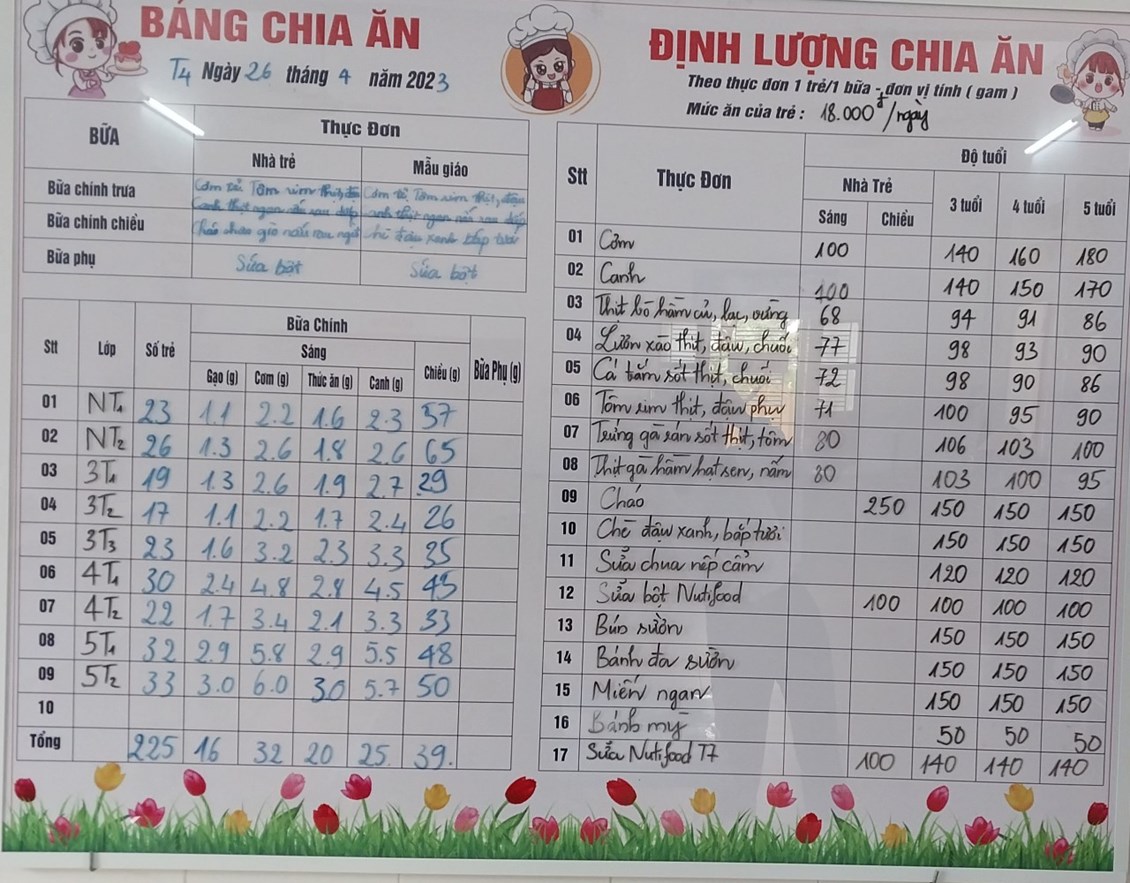 BẢNG CHIA ĂN
T4 Ngày 26 tháng 4 năm 2023
BỮA Thực Đơn
Nhà trẻ Mẫu giáo
Bữa chính trưa Cơm tẻ Tôm rim thịt, đậu Cơm tẻ, Tôm rim thịt, đậu
Canh thịt ngan nấu rau canh thịt ngan nấu rau
Bữa chính chiều Cháo chân giò nấu rau ngót chè đậu xanh bắp tươi
Bữa phụ Sữa bột Sữa bột
Stt Lớp Số trẻ Bữa Chính Bữa Phụ (g)
Sáng Chiều (g)
Gạo (g) Cơm (g) Thức ăn (g) Canh (g)
01 NT1 23 1.1 2.2 1.6 2.3 57
02 NT2 26 1.3 2.6 1.8 2.6 65
03 3T1 19 1.3 2.6 1.9 2.7 29
04 3T2 17 1.1 2.2 1.7 2.4 26
05 3T3 23 1.6 3.2 2.3 3.3 35
06 4T1 30 2.4 4.8 2.8 4.5 45
07 4T2 22 1.7 3.4 2.1 3.3 33
08 5T1 32 2.9 5.8 2.9 5.5 48
09 5T2 33 3.0 6.0 30 5.7 50
10
Tổng 225 16 32 20 25. 39.
ĐỊNH LƯỢNG CHIA ĂN
Theo thực đơn 1 trẻ/1 bữa - đơn vị tính ( gam )
Mức ăn của trẻ : 18.000đ/ngày
Stt Thực Đơn Độ tuổi
Nhà Trẻ 3 tuổi 4 tuổi 5 tuổi
Sáng Chiều
01 Cơm 100 140 160 180
02 Canh 100 140 150 170
03 Thịt bò hầm củ, lạc, vừng 68 94 91 86
04 Lươn xào thịt, đậu, chuối 77 98 93 90
05 Cá tầm sốt thịt, chuối 72 98 90 86
06 Tôm rim thịt, đậu phụ 71 100 95 90
07 Trứng gà rán sốt thịt, tôm 80 106 103 100
08 Thịt gà hầm hạt sen, nấm 80 103 100 95
09 Cháo 250 150 150 150
10 Chè đậu xanh, bắp tươi 150 150 150
11 Sữa chua nếp cẩm 120 120 120
12 Sữa bột Nutifood 100 100 100 100
13 Bún sườn 150 150 150
14 Bánh đa sườn 150 150 150
15 Miến ngan 150 150 150
16 Bánh mỳ 50 50 50
17 Sữa Nutifood T7 100 140 140 140